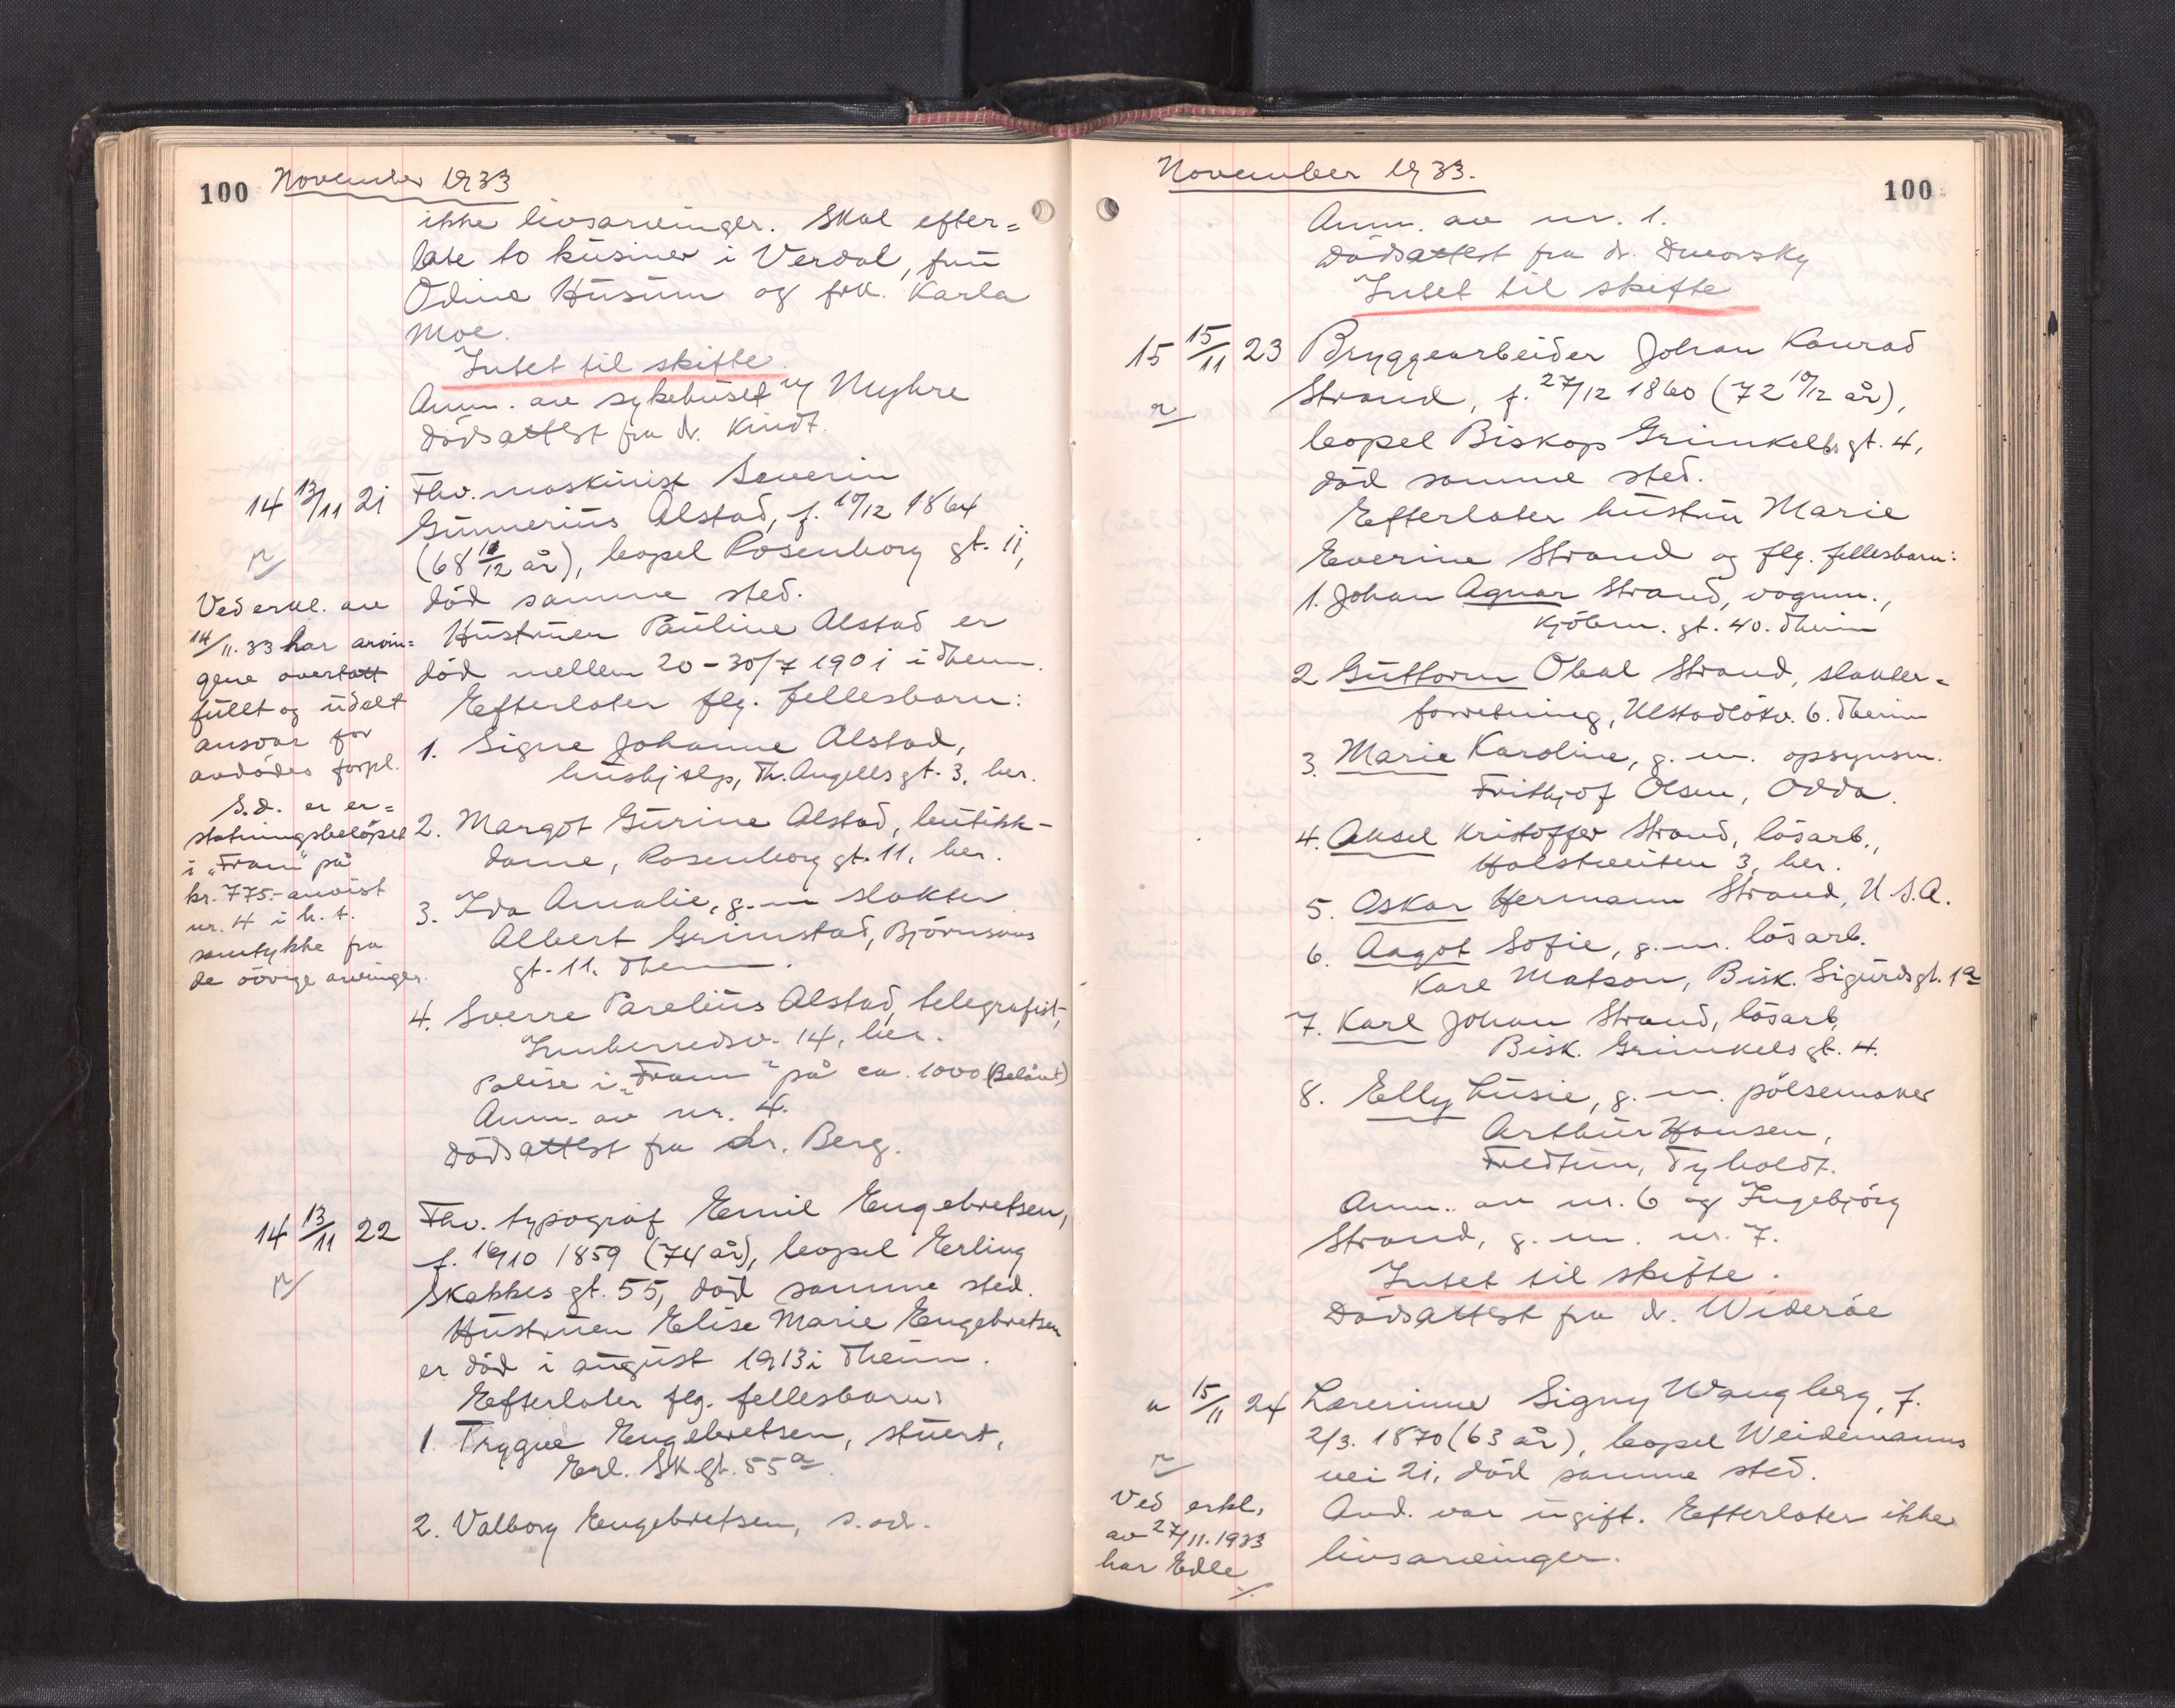 100 November 1933
ikke livsarvinger. Skal efter=
late to kusiner i Verdal, fru
Odine Husum og frk. Karla
Moe.
Intet til skifte.
Anm. av sykehuset v/ Myhre
Dødsattest fra dr. Kindt.
14 13/11 21 Fhv. maskinist Severin
Gunnerius Alstad, f. 10/12 1864
(68 11/12 år), bopel Rosenborg gt. 11,
død samme sted.
Hustruen Pauline Alstad er
død mellem 20-30/7 1901 i Theim.
Efterlater flg. fellesbarn:
1. Signe Johanne Alstad,
hushjelp, Th. Angells gt. 3, her.
2. Margot Gurine Alstad, butikk-
dame, Rosenborg gt. 11, her.
3. Ida Amalie, g. m. slakter
Albert Grimstad, Bjørnsons
gt. 11. Theim.
4. Sverre Parelius Alstad, telegrafist,
Innherredsv. 14, her.
Polise i "Fram" på ca. 1000 (Belånt)
Anm. av nr. 4.
Dødsattest fra dr. Berg.
Ved erkl. av
14/11.33 har arvin=
gene overtatt
fullt og udelt
ansvar for
avdødes forpl.
S.d. er er=
statningsbeløpet
i "Fram" på
kr. 775.- anvist
nr. 4 i h. t.
samtykke fra
de øvrige arvinger.
14 13/11 22 Fhv. typograf Emil Engebretsen,
f. 16/10 1859 (74 år), bopel Erling
Skakkes gt. 55, død samme sted.
Hustruen Elise Marie Engebretsen
er død i august 1913 i Theim.
Efterlater flg. fellesbarn:
1. Trygve Engebretsen, stuert,
Erl. Sk. gt. 55a.
2. Valborg Engebretsen, s. sd.
November 1933. 100
Anm. av nr. 1.
Dødsattest fra dr. Dworsky
Intet til skifte
15 15/11 23 Bryggearbeider Johan Konrad
Strand, f. 27/12 1860 (72 10/12 år),
bopel Biskop Grimkells gt. 4,
død samme sted.
Efterlater hustru Marie
Everine Strand og flg. fellesbarn:
1. Johan Agnar Strand, vognm.,
Kjøbm. gt. 40. Theim
2 Guttorm Olaf Strand, slakter=
forretning, Ulstadløkv. 6. Theim
3. Marie Karoline, g. m. opsynsm.
Frithjof Olsen, Odda.
4. Aksel Kristoffer Strand, løsarb.,
Holstveiten 3, her.
5. Oskar Hermann Strand, U.S.A.
6. Aagot Sofie, g. m. løsarb.
Kare Matson, Bisk. Sigurds gt. 1a
7. Karl Johan Strand, løsarb,
Bisk. Grimkels gt. 4.
8. Elly Lusie, g. m. pølsemaker
Arthur Hansen,
Fredtun, Tyholdt.
Anm. av nr. 6 og Ingebjørg
Strand, g. m. nr. 7.
Intet til skifte.
Dødsattest fra dr. Widerøe
" 15/11 24 Lærerinne Signy Wangberg, f.
2/3. 1870 (63 år), bopel Weidemanns
vei 21, død samme sted.
Avd. var ugift. Efterlater ikke
livsarvinger.
Ved erkl.
av 27/11.1933
har Edle
./.